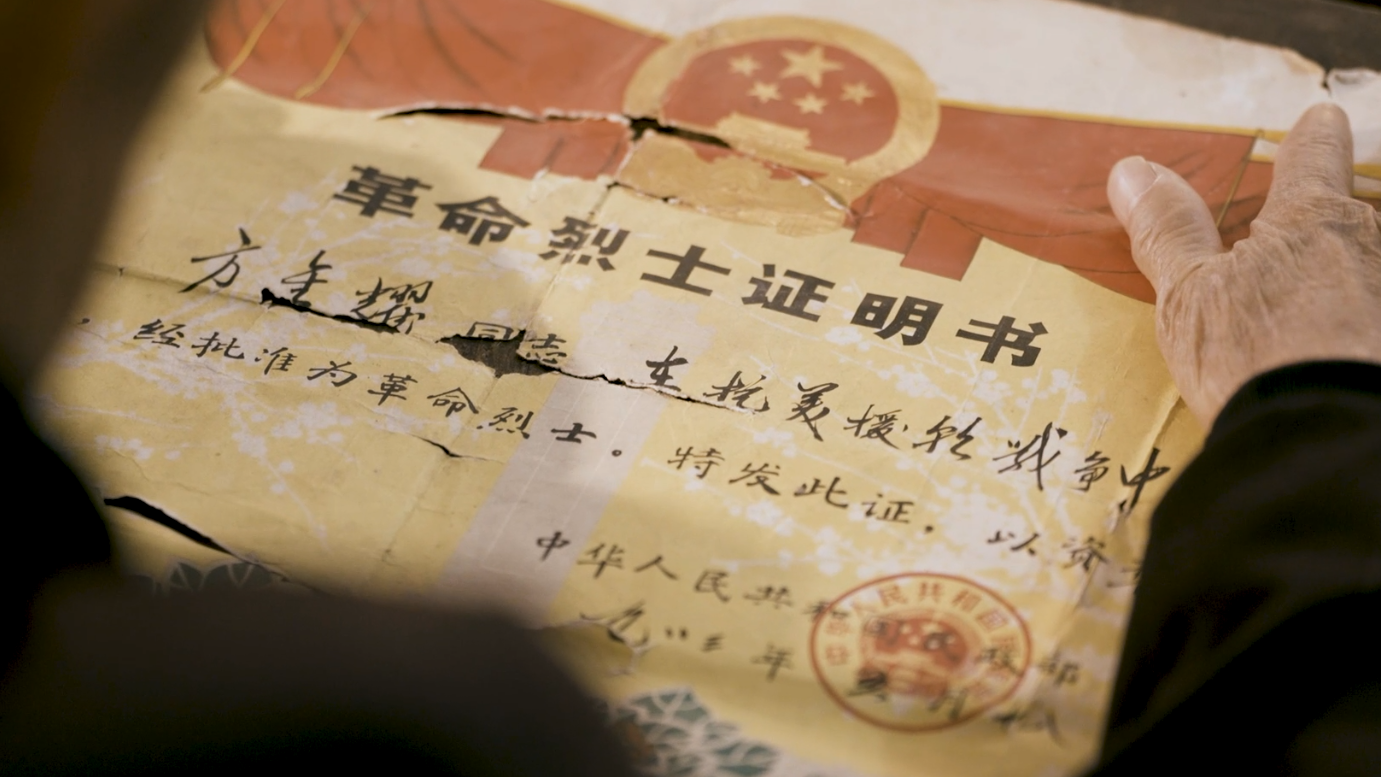 革命烈士证明书
方金耀 同志 在抗美援朝战争中
，经批准为革命烈士。特发此证，以资
中华人民共和国民政部
一九八三年